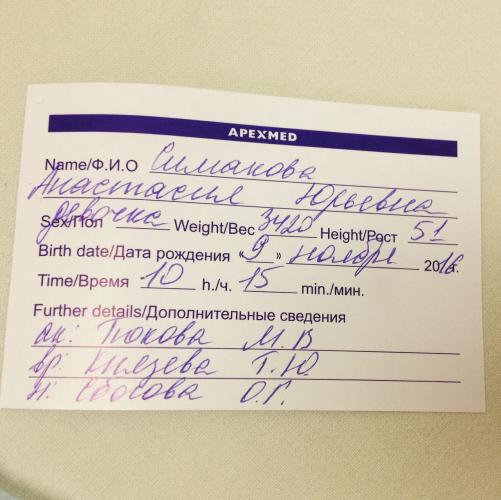 APEXMED
Name/Ф.И.О Симакова
Анастасия Юрьевна
Sex/Пол девочка Weight/Вес 3420 Height/Рост 51
Birth date/Дата рождения 9 » ноября 2016г.
Time/Время 10 h./ч. 15 min./мин.
Further details/Дополнительные сведения
ак: Тюкова М.В
вр: Князева Т.Ю.
О.Г.